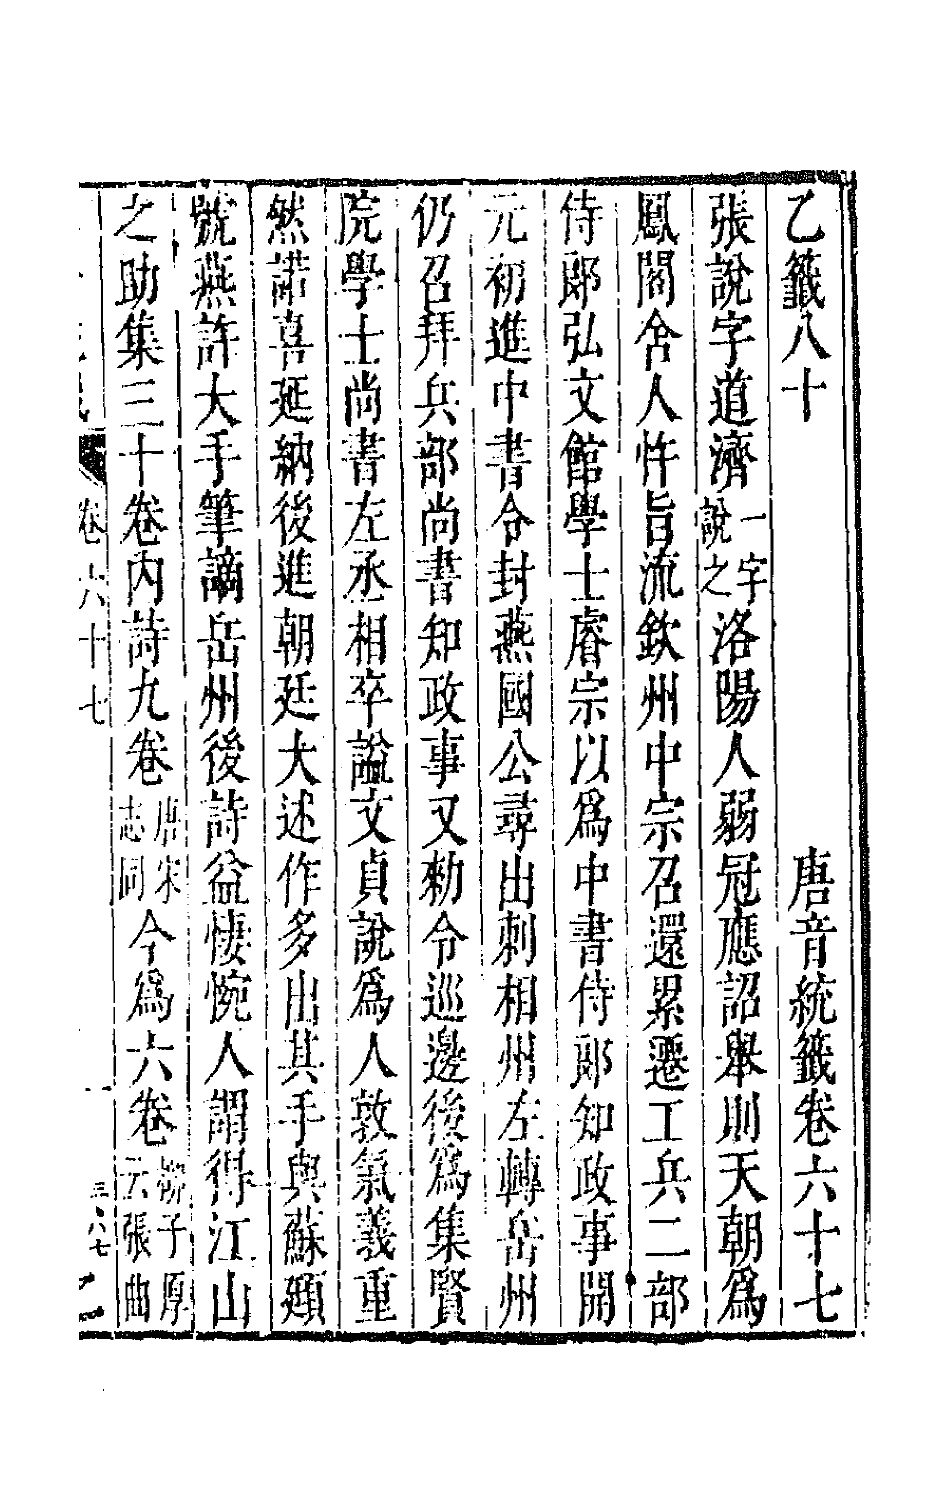 乙籤八十　唐音統籤卷六十七
張說字道濟一字說之洛陽人弱冠應詔舉則天朝爲
鳳閣舍人忤旨流欽州中宗召還累遷工兵二部
侍郞弘文館學士睿宗以爲中書侍郞知政事開
元初進中書令封燕國公尋出刺相州左轉岳州
仍召拜兵部尚書知政事又勑令巡邊後爲集賢
院學士尚書左丞相卒謚文貞說爲人敦氣義重
然諾喜延納後進朝廷大述作多出其手與蘇頲
號燕許大手筆謫岳州後詩益悽惋人謂得江山
之助集三十卷內詩九卷唐宋志同今爲六卷柳子厚云張曲
卷六十七